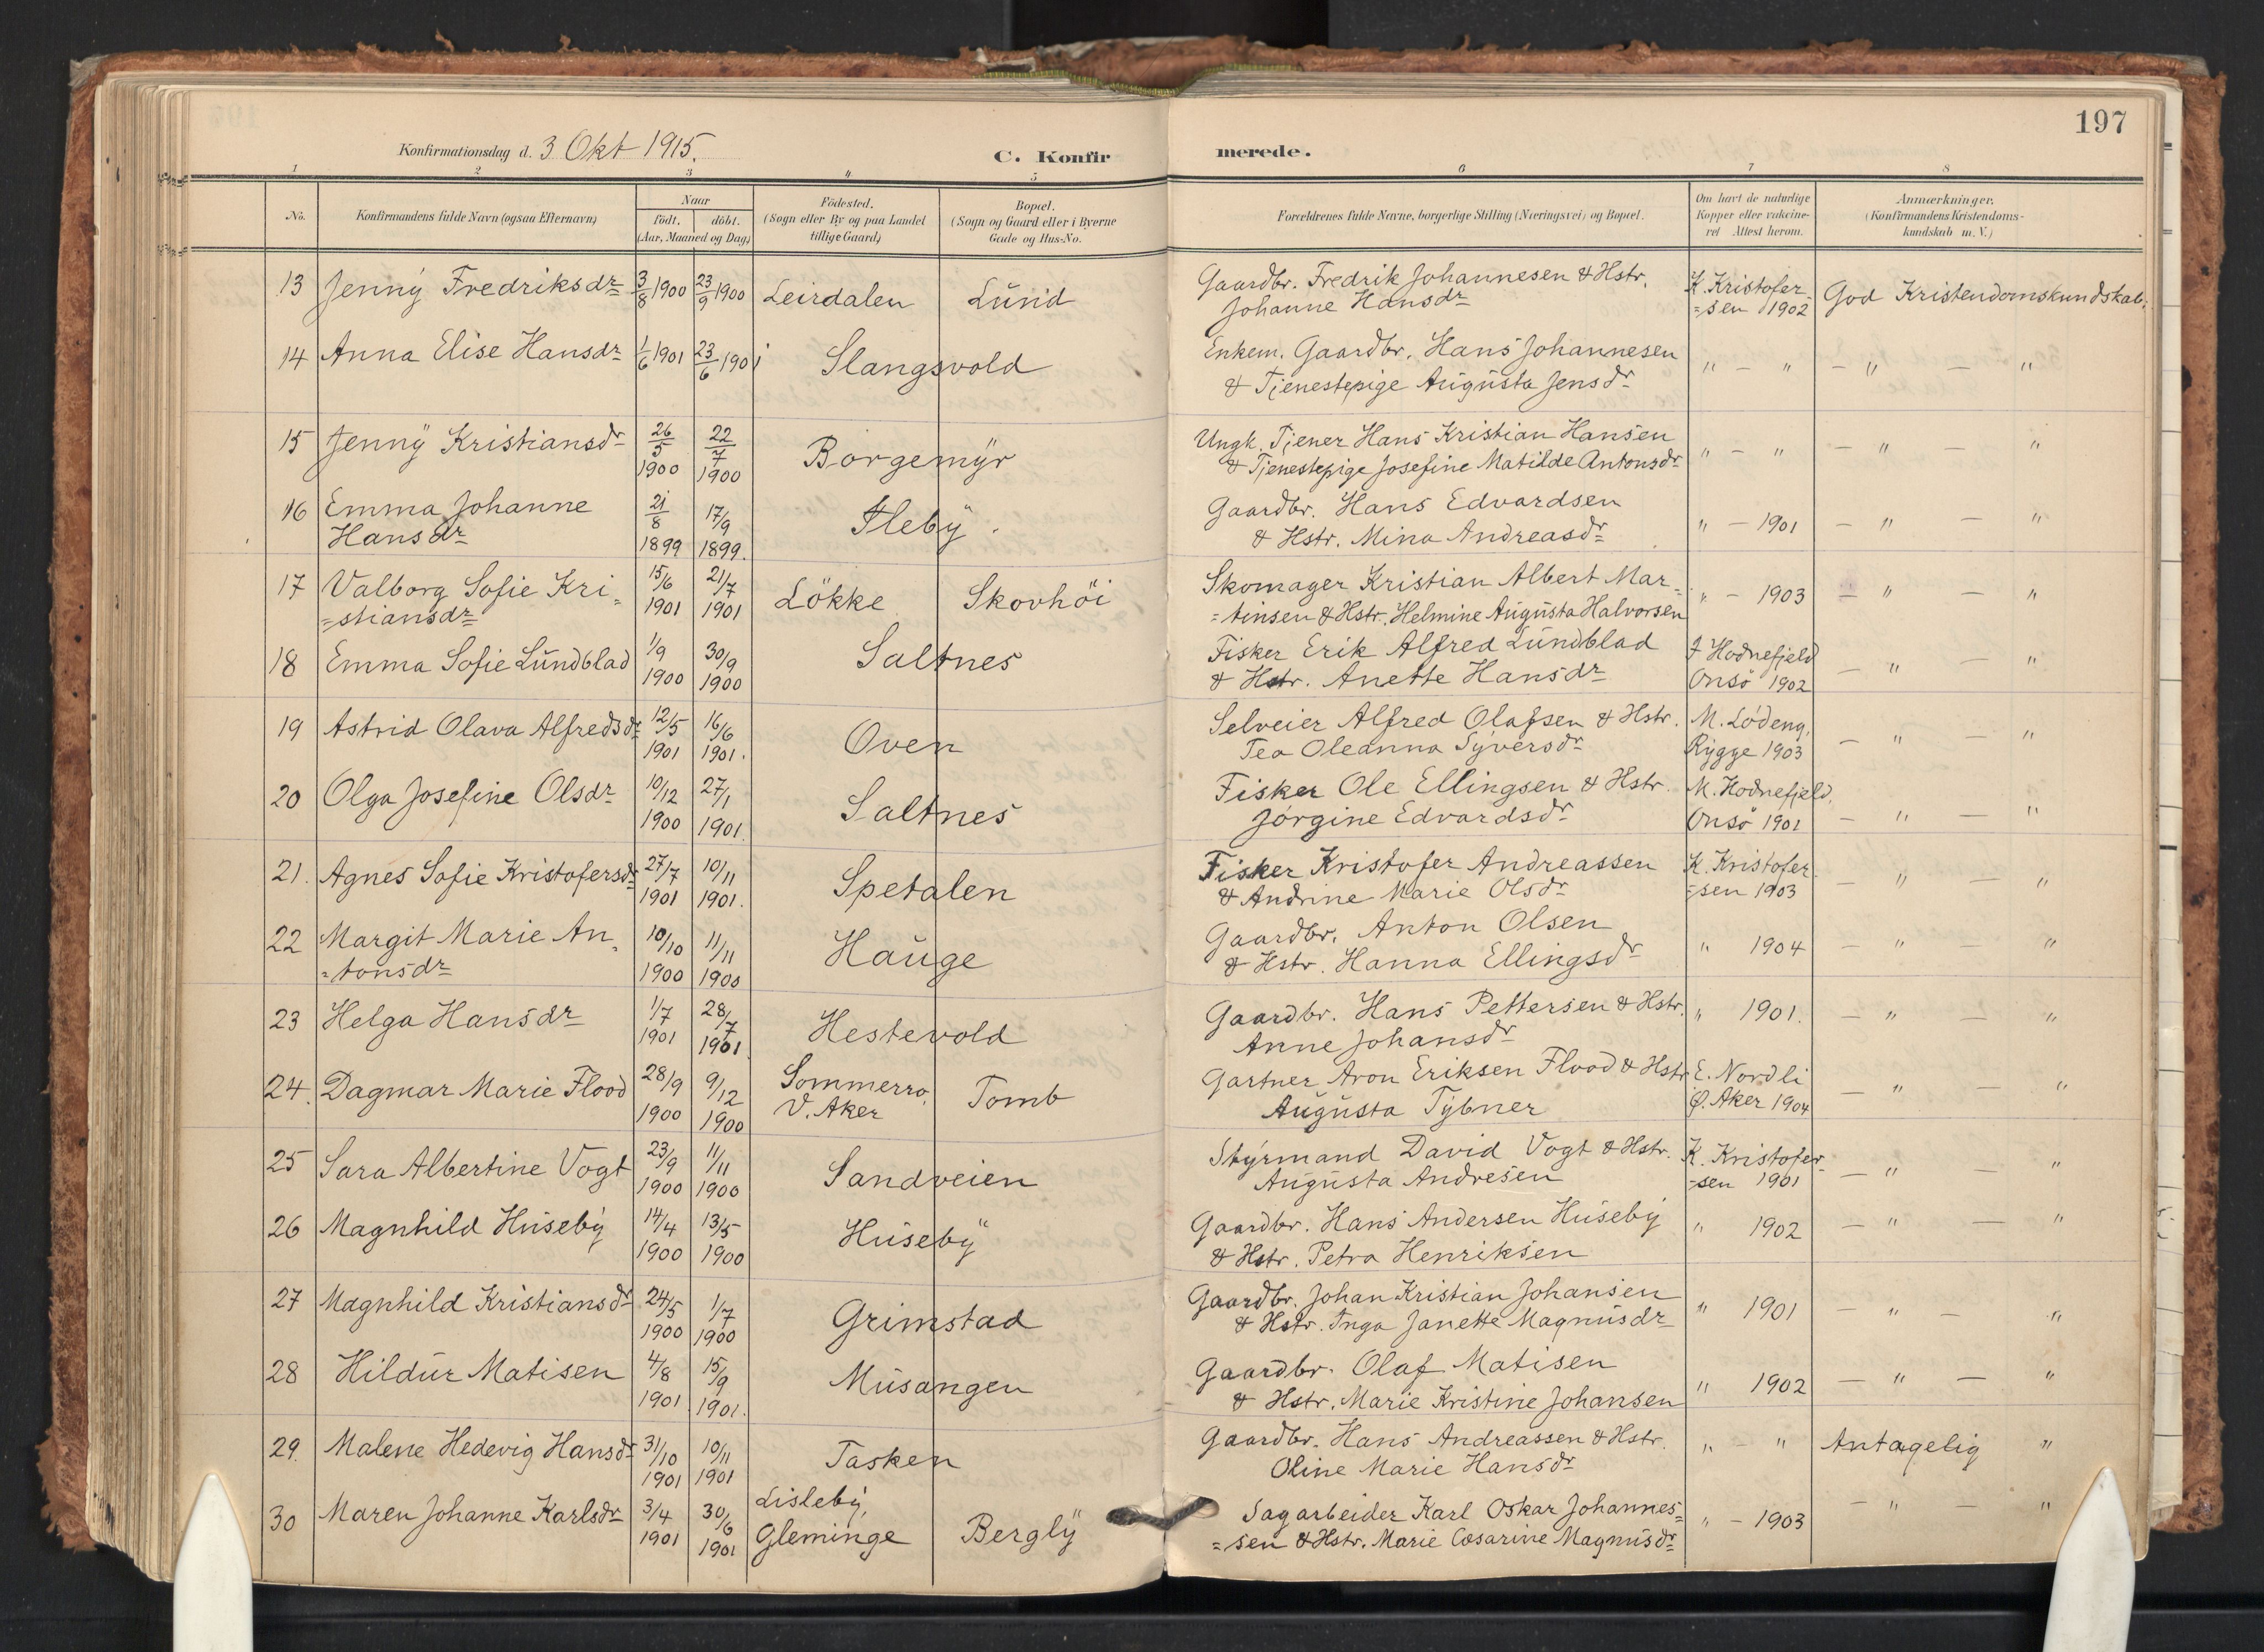 197
Konfirmationsdag d. 3 Okt 1915.
C. Konfir
merede.
1 2 3 4 5 6 7 8
No.
Konfirmandens fulde Navn (ogsaa Efternavn)
Naar
födt. döbt.
(Aar, Maaned og Dag)
Födested.
(Sogn eller By og paa Landet
tillige Gaard)
Bopæl.
(Sogn og Gaard eller i Byerne
Gade og Hus-No.
Forældrenes fulde Navne, borgerlige Stilling (Næringsvei) og Bopæl.
Om havt de naturlige
Kopper eller vakcine-
ret Attest herom.
Anmærkninger.
(Konfirmandens Kristendoms-
kundskab m. V.)
13 Jenny Fredriksdr 3/8 1900 23/9 1900 Leirdalen Lund Gaardbr. Fredrik Johannesen & Hstr. K. Kristofer- God Kristendomskundskab.
Johanne Hansdr =sen 1902
14 Anna Elise Hansdr 1/6 1901 23/6 1901 Slangsvold Enkem. Gaardbr. Hans Johannesen " - " - " - "
& Tjenestepige Augusta Jensdr
15 Jenny Kristiansdr 26/5 22/7 Borgemyr Ungk. Tjener Hans Kristian Hansen " - " - " - "
1900 1900 & Tjenestepige Josefine Matilde Antonsdr
16 Emma Johanne 21/8 17/9 Fleby. Gaardbr. Hans Edvardsen " - 1901 - " - "
Hansdr 1899 1899. & Hstr. Mina Andreasdr
17 Valborg Sofie Kri= 15/6 21/7 Lökke Skovhöi Skomager Kristian Albert Mar- " - 1903 - " - "
=stiansdr 1901 1901 =tinsen & Hstr. Helmine Augusta Halvorsen
18 Emma Sofie Lundblad 1/9 30/9 Saltnes Fisker Erik Alfred Lundblad J Hodnefjeld - " - "
1900 1900 & Hstr. Anette Hansdr Onsö 1902
19 Astrid Olava Alfredsdr 12/5 16/6 Oven Selveier Alfred Olafsen & Hstr. M. Lödeng, - " - "
1901 1901. Tea Oleanna Syversdr Rygge 1903
20 Olga Josefine Olsdr 10/12 27/1 Saltnes Fisker Ole Ellingsen & Hstr. M. Hodnefjeld, - " - "
1900 1901. Jörgine Edvardsdr Onsö 1901
21. Agnes Sofie Kristofersdr 27/7 10/11 Spetalen Fisker Kristofer Andreassen K. Kristofer- - " - "
1901 1901. & Andrine Marie Olsdr =sen 1903
22 Margit Marie An= 10/10 11/11 Hauge Gaardbr. Anton Olsen " 1904 - " - "
=tonsdr 1900 1900 & Hstr. Hanna Ellingsdr
23 Helga Hansdr 1/7 28/7 Hestevold Gaardbr. Hans Pettersen & Hstr. " 1901. - " - "
1901 1901 Anne Johansdr
24. Dagmar Marie Flood 28/9 9/12 Sommerro, Tomb Gartner Aron Eriksen Flood & Hstr E. Nordli - " - "
1900 1900 V. Aker Augusta Tybner Ø. Aker 1904
25 Sara Albertine Vogt 23/9 11/11 Sandveien Styrmand David Vogt & Hstr. K. Kristofer- - " - "
1900 1900 Augusta Andresen =sen 1901
26 Magnhild Huseby 14/4 13/5 Huseby Gaardbr. Hans Andersen Huseby " 1902 - " - "
1900 1900 & Hstr. Petra Henriksen
27 Magnhild Kristiansdr 24/5 1/7 Grimstad Gaardbr. Johan Kristian Johansen " 1901 - " - "
1900 1900 & Hstr. Inga Janette Magnusdr
28 Hildur Matisen 4/8 15/9 Musangen Gaardbr. Olaf Matisen " 1902 - " - "
1901 1901. & Hstr. Marie Kristine Johansen
29. Malene Hedevig Hansdr 31/10 10/11 Tasken Gaardbr. Hans Andreassen & Hstr. " - " Antagelig "
1901 1901 Oline Marie Hansdr
30 Maren Johanne Karlsdr 3/4 30/6 Lisleby, Bergly Sagarbeider Karl Oskar Johannes= " - 1903 - " - "
1901 1901 Gleminge =sen & Hstr. Marie Cæsarine Magnusdr